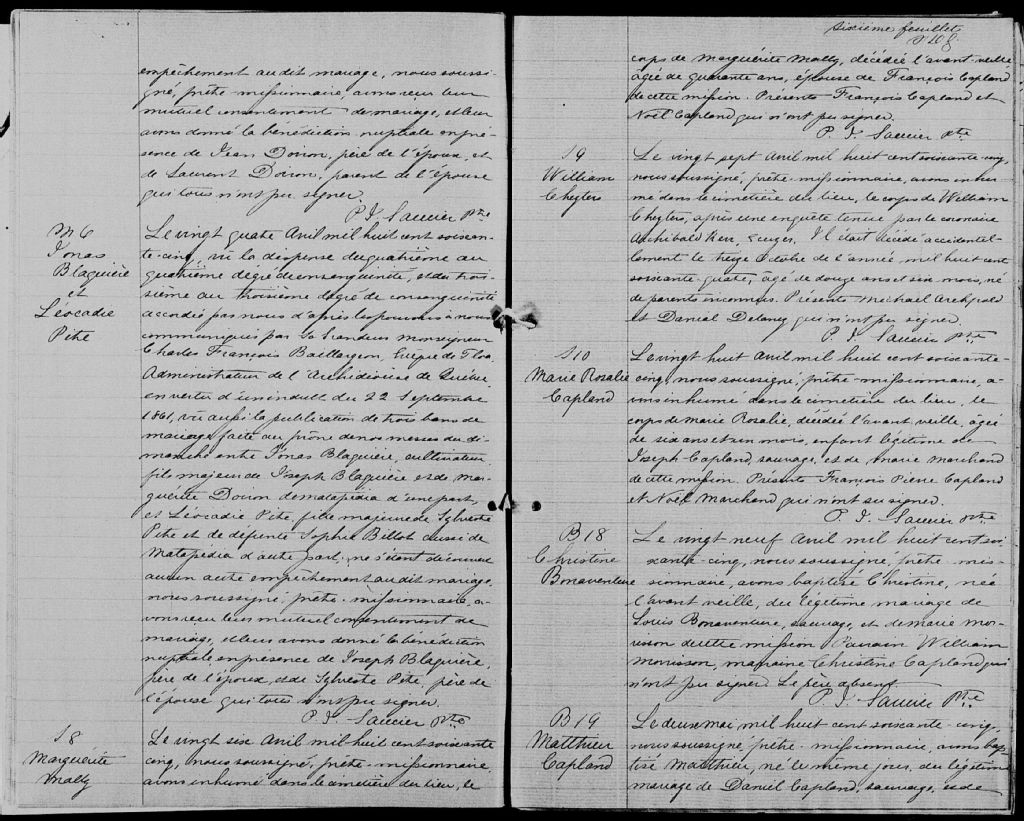 empêchement au dit mariage, nous soussi-
gné, prêtre-missionnaire, avons reçu leur
mutuel consentement de mariage, et leur
avons donné la bénédiction nuptiale en pré-
sence de Jean Doiron, père de l'époux, et
de Laurent Doiron, parent de l'épouse
qui tous n'ont pu signer.
P. J. Saucier Ptre
M 6
Jonas
Blaquière
et
Léocadie
Pitre
Le vingt quatre Avril mil huit cent soixan-
te-cinq, vu la dispense du quatrième au
quatrième degré de consanguinité, et du troi-
sième au troisième degré de consanguinité
accordée par nous d'après les pouvoirs à nous
communiqués par Sa Grandeur Monseigneur
Charles François Baillargeon, Evêque de Tloa,
Administrateur de l'Archidiocèse de Québec,
en vertu d'un indult du 22 Septembre
1861, vu aussi la publication de trois bans de
mariage faite au prône de nos messes du di-
manche entre Jonas Blaquière, cultivateur,
fils majeur de Joseph Blaquière et de Mar-
guerite Doiron de Matapédia d'une part,
et Léocadie Pitre, fille majeure de Sylvestre
Pitre et de défunte Sophie Billot aussi de
Matapedia d'autre part; ne s'étant découvert
aucun autre empêchement au dit mariage,
nous soussigné, prêtre-missionnaire, a-
vons reçu leur mutuel consentement de
mariage, et leur avons donné la bénédiction
nuptiale en présence de Joseph Blaquière,
père de l'époux, et de Sylvestre Pitre, père de
l'épouse qui tous n'ont pu signer.
P. J. Saucier Ptre
S 8
Marguérite
Mally
Le vingt six Avril mil huit cent soixante
cinq, nous soussigné, prêtre-missionnaire
avons inhumé dans le cimetière du lieu, le
Sixième feuillet
corps de Marguérite Mally, décédée l'avant-veille
âgée de quarante ans, épouse de François Capland
de cette mission. Présents François Capland et
Noël Capland qui n'ont pu signer.
P. J. Saucier Ptre
S 9
William
Cheyters
Le vingt sept Avril mil huit cent soixante cinq,
nous soussigné, prêtre-missionnaire, avons inhu-
mé dans le cimetière du lieu, le corps de William
Cheyters, après une enquête tenue par le coronaire
Archibald Kerr, Il était décédé accidentel-
lement le treize Octobre de l'année mil huit cent
soixante-quatre, âgé de douze ans et six mois, né
de parents inconnus. Présents Michael
et Daniel Delaney qui n'ont pu signer.
P. J. Saucier Ptre
S 10
Marie Rosalie
Capland
Le vingt huit Avril mil huit cent soixante-
cinq, nous soussigné, prêtre-missionnaire, a-
vons inhumé dans le cimetière du lieu, le
corps de Marie Rosalie, décédée l'avant veille, âgée
de six ans et un mois, enfant légitime de
Joseph Capland, sauvage, et de Marie Marchand
de cette mission. Présents François Pierre Capland
et Noël Marchand qui n'ont su signer.
P. J. Saucier Ptre
B 18
Christine
Bonaventure
Le vingt neuf Avril mil huit cent soi-
xante-cinq, nous soussigné, prêtre-mis-
sionnaire, avons baptisé Christine, née
l'avant veille, du légitime mariage de
Louis Bonaventure, sauvage, et de Marie Mor-
risson de cette mission Parrain William
Morisson, marraine Christine Capland qui
n'ont pu signer. Le père absent.
P. J. Saucier Ptre
B 19
Matthieu
Capland
Le deux Mai mil huit cent soixante-cinq,
nous soussigné, prêtre-missionnaire, avons bap-
tisé Matthieu, né le même jour, du légitime
mariage de Daniel Capland, sauvage, et de